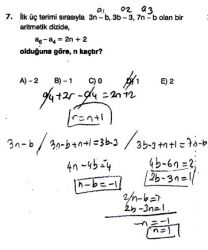 a₁ a₂ a₃
7. İlk üç terimi sırasıyla 3n – b, 3b – 3, 7n – b olan bir
aritmetik dizide,
a₆ – a₄ = 2n + 2
olduğuna göre, n kaçtır?
A) – 2 B) – 1 C) 0 D) 1 E) 2
a₄+2r – a₄ = 2n+2
r=n+1
3n-b / 3n-b+n+1=3b-3 / 3b-3+n+1=7n-b
4n-4b=-4
4b-6n=2
n-b=-1
2b-3n=1
2/n-b=-1
2b-3n=1
-n=-1
n=1